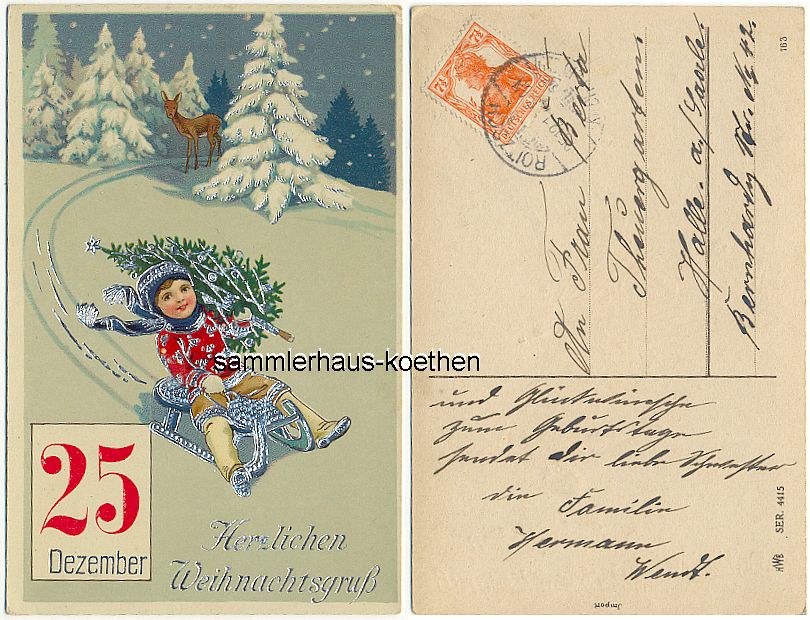 25
Dezember
Herzlichen
Weihnachtsgruß
sammlerhaus-koethen
7½ 7½
DEUTSCHES REICH
163
An Frau Berta
Theuergarten.
Halle. a/Saale.
Bernhardy Str. № 42.
und Glückwünsche
zum Geburtstage
sendet dir liebe Schwester
die Familie
Hermann
Wendt.
HWB SER. 4415
Import